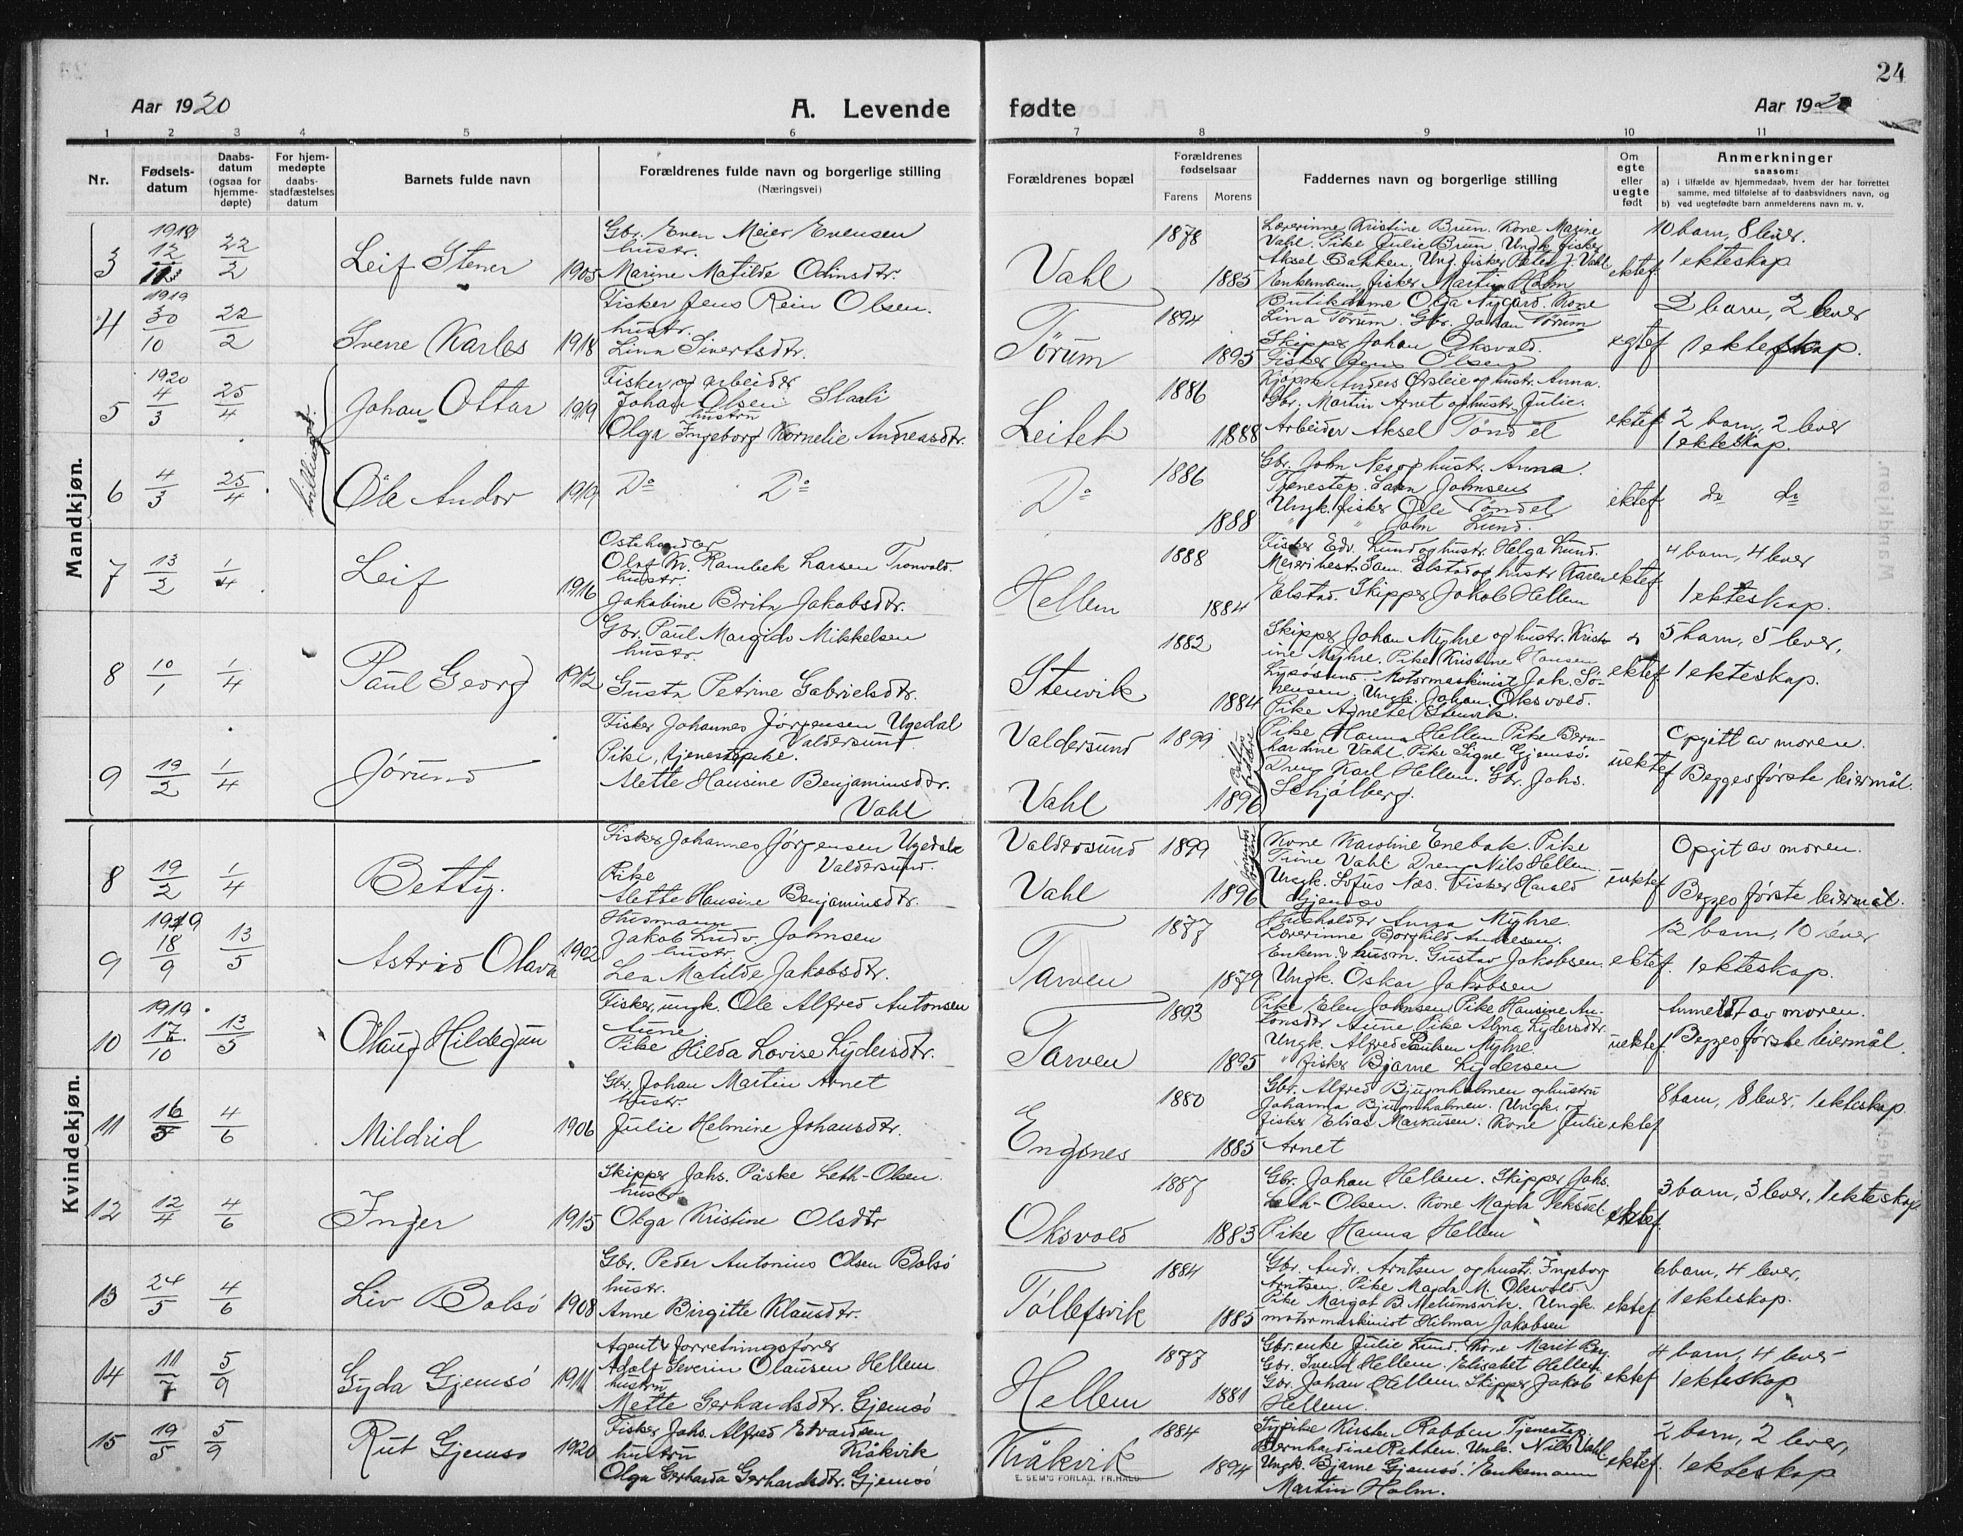 24
Aar 1920
A. Levende fødte
Aar 1920
1 2 3 4 5 6 7 8 9 10 11
Nr.
Fødsels-
datum
Daabs-
datum
(ogsaa for
hjemme-
døpte)
For hjem-
medøpte
daabs-
stadfæstelses
datum
Barnets fulde navn
Forældrenes fulde navn og borgerlige stilling
(Næringsvei)
Forældrenes bopæl
Forældrenes
fødselsaar
Farens Morens
Faddernes navn og borgerlige stilling
Om
egte
eller
uegte
født
Anmerkninger
saasom:
a) i tilfælde av hjemmedaab, hvem der har forrettet
samme, med tilføielse af to daabsvidners navn, og
b) ved uegtefødte barn anmelderens navn m. v.
Mandkjøn.
3 1919 12/11 22/2 Leif Stener 1905
Gbr. Even Meier Evensen
hustr.
Marine Matilde Odinsdtr.
Vahl 1878 1885
Lærerinne Kristine Brun. Kone Marine
Vahl. Pike Julie Brun. Ungk. fisker
Aksel Bakken. Ung. fisker Peter J. Vahl
Enkemann, fisker Martin Holm
ektef
10 barn, 8 lever.
1 ekteskap
4 1919 30/10 22/2 Sverre Karlos 1918
Fisker Jens Rein Olsen.
hustr.
Lina Sivertsdtr.
Tørum 1894 1895
Butikdame Olga Nygård. Kone
Lina Tørum. Gbr. Johan Tørum
Skipper Johan Oksvold.
Fisker Jens Olsen
egtef
2 barn, 2 lever
1 ekteskap.
5 1920 4/3 25/4 tvillinger Johan Ottar 1919
Fisker og arbeider
Johan Olsen
hustru
Olga Ingeborg Kornelie Andreasdtr.
Leiteh 1886 1888
Gbr. Martin Arnet og hustr. Julie.
Arbeider Aksel Tøndel
ektef
2 barn, 2 lever
1 ekteskap.
6 4/3 25/4 Ole Andor 1919
Do Do
Do 1886 1888
Gbr. John Nes og hustr. Anna.
Tjenestep. Johnsen
Ungk. fisker Ole Tøndel
" " John Lund.
ektef
do do
7 13/2 1/4 Leif 1916
Ostehandler
Olaf M. Rambek Larsen Tronvold.
hustr.
Jakobine Brita Jakobsdtr.
Hellem 1888 1884
Fisker Edv. Lund og hustr. Helga Lund.
Meieribest. Sam. Elstad og hustr Karen
Elstad. Skipper Jakob Hellem
ektef.
4 barn, 4 lever
1 ekteskap.
8 10/1 1/4 Paul Georg 1912
Gbr. Paul Margido Mikkelsen
hustr.
Gusta Petrine Gabrielsdtr.
Stenvik 1882 1884
Skipper Johan Myhre og hustr. Krist-
ine Myhre. Pike Kristine Hansen
Lysøsund. Motormaskinist Jak. Sö-
rensen. Ungk. Johan Oksvold.
Pike Agnete Stenvik.
ektef
5 barn, 5 lever,
1 ekteskap.
9 19/2 1/4 Jørund
Fisker Johannes Jørgensen Ugedal
Valdersund
Pike, tjenestepike.
Alette Hansine Benjaminsdtr.
Vahl
Valdersund 1899
Vahl 1896
Pike Hanna Hellem Pike Bern-
hardine Vahl Pike Signe Gjemsö.
Dreng Karl Hellem. Gbr. Johs.
Schjölberg.
uektef
Opgitt av moren.
Begges første leiermål.
Kvindekjøn.
8 19/2 1/4 Betty.
Fisker Johannes Jörgensen Ugedal
Pike Valdersund.
Alette Hansine Benjaminsdtr.
Valdersund 1899
Vahl 1896
Kone Karoline Enebak. Pike
Trine Vahl. Dreng Nils Hellem
Ungk. Sofus Næs. Fisker Harald
Gjemsö
uektef
Opgit av moren.
Begges første leiermål.
9 1919 18/9 13/5 Astrid Olava 1902
Husmann
Jakob Ludv. Johnsen
hustr.
Lea Matilde Jakobsdtr.
Tarven 1877 1879
Husholder Anna Myhre.
Lærerinne Borghild Andresen.
Enkem. & husm. Gustav Jakobsen.
Ungk. Oskar Jakobsen
ektef.
12 barn, 10 lever
1 ekteskap.
10 1919 17/10 13/5 Olaug Hildegun
Fisker, ungk. Ole Alfred Antonsen
Aune.
Pike Hilda Lovise Lydersdtr.
Tarven 1893 1895
Pike Elen Johnsen Pike Hansine An-
tonsdtr Aune Pike Alma Lydersdtr.
Ungk. Alfred Paulsen Myhre.
" fisker Bjarne Lydersen
uektef.
Anmeldt av moren.
Begges første leiermål.
11 16/5 4/6 Mildrid 1906
Gbr. Johan Martin Arnet
hustr.
Julie Helmine Johansdtr.
Engsnes 1880 1885
Gbr. Alfred Bjørnholmen og hustru
Johanna Bjørnholmen. Ungk. og
fisker Elias Markusen. Kone Julie
Arnet
ektef
8 barn, 8 lever, 1 ekteskap.
12 12/4 4/6 Inger 1915
Skipper Johs. Påske Leth-Olsen.
hustr
Olga Kristine Olsdtr
Oksvold 1887 1883
Gbr. Johan Hellem. Skipper Johs.
Leth-Olsen. Kone Magda Feksdal
Pike Hanna Hellem
ektef.
3 barn, 3 lever, 1 ekteskap
13 24/5 4/6 Liv Bolsö 1908
Gbr. Peder Antonius Olsen Bolsö
hustr.
Anne Birgitte Klausdtr.
Töllefsvik 1884 1885
Gbr. Andr. Arntsen og hustr. Ingeborg
Arntsen. Pike Magda M. Oksvold.
Pike Margot B Melumsvik. Ungk.
motormaskinist Hilmar Jakobsen
ektef.
6 barn, 4 lever,
1 ekteskap.
14 11/7 5/9 Gyda Gjemsö 1911
Agent & forretningsfører
Adolf Severin Olausen Hellem
hustru
Mette Gerhardsdtr. Gjemsö
Hellem 1877 1881
Gbr. enke Julie Lund. Kone Marit Berg
Gbr. Svend Hellem. Elisabet Hellem
Gbr. Johan Hellem. Skipper Jakob
Hellem.
ektef
4 barn, 4 lever
1 ekteskap
15 19/5 5/9 Rut Gjemsö 1920
Fisker Johs. Alfred Edvardsen
hustru Kråkvik
Olga Gerharda Gerhardsdtr. Gjemsö
Kråkvik 1884 1894
Sypike Kirsten Rabben Tjenestep.
Bernhardine Rabben. Ungk. Nils Vahl
Ungk. Bjarne Gjemsö. Enkemann
Martin Holm.
ektef.
2 barn, 2 lever,
1 ekteskap
E. SEM'S FORLAG, FR.HALD.